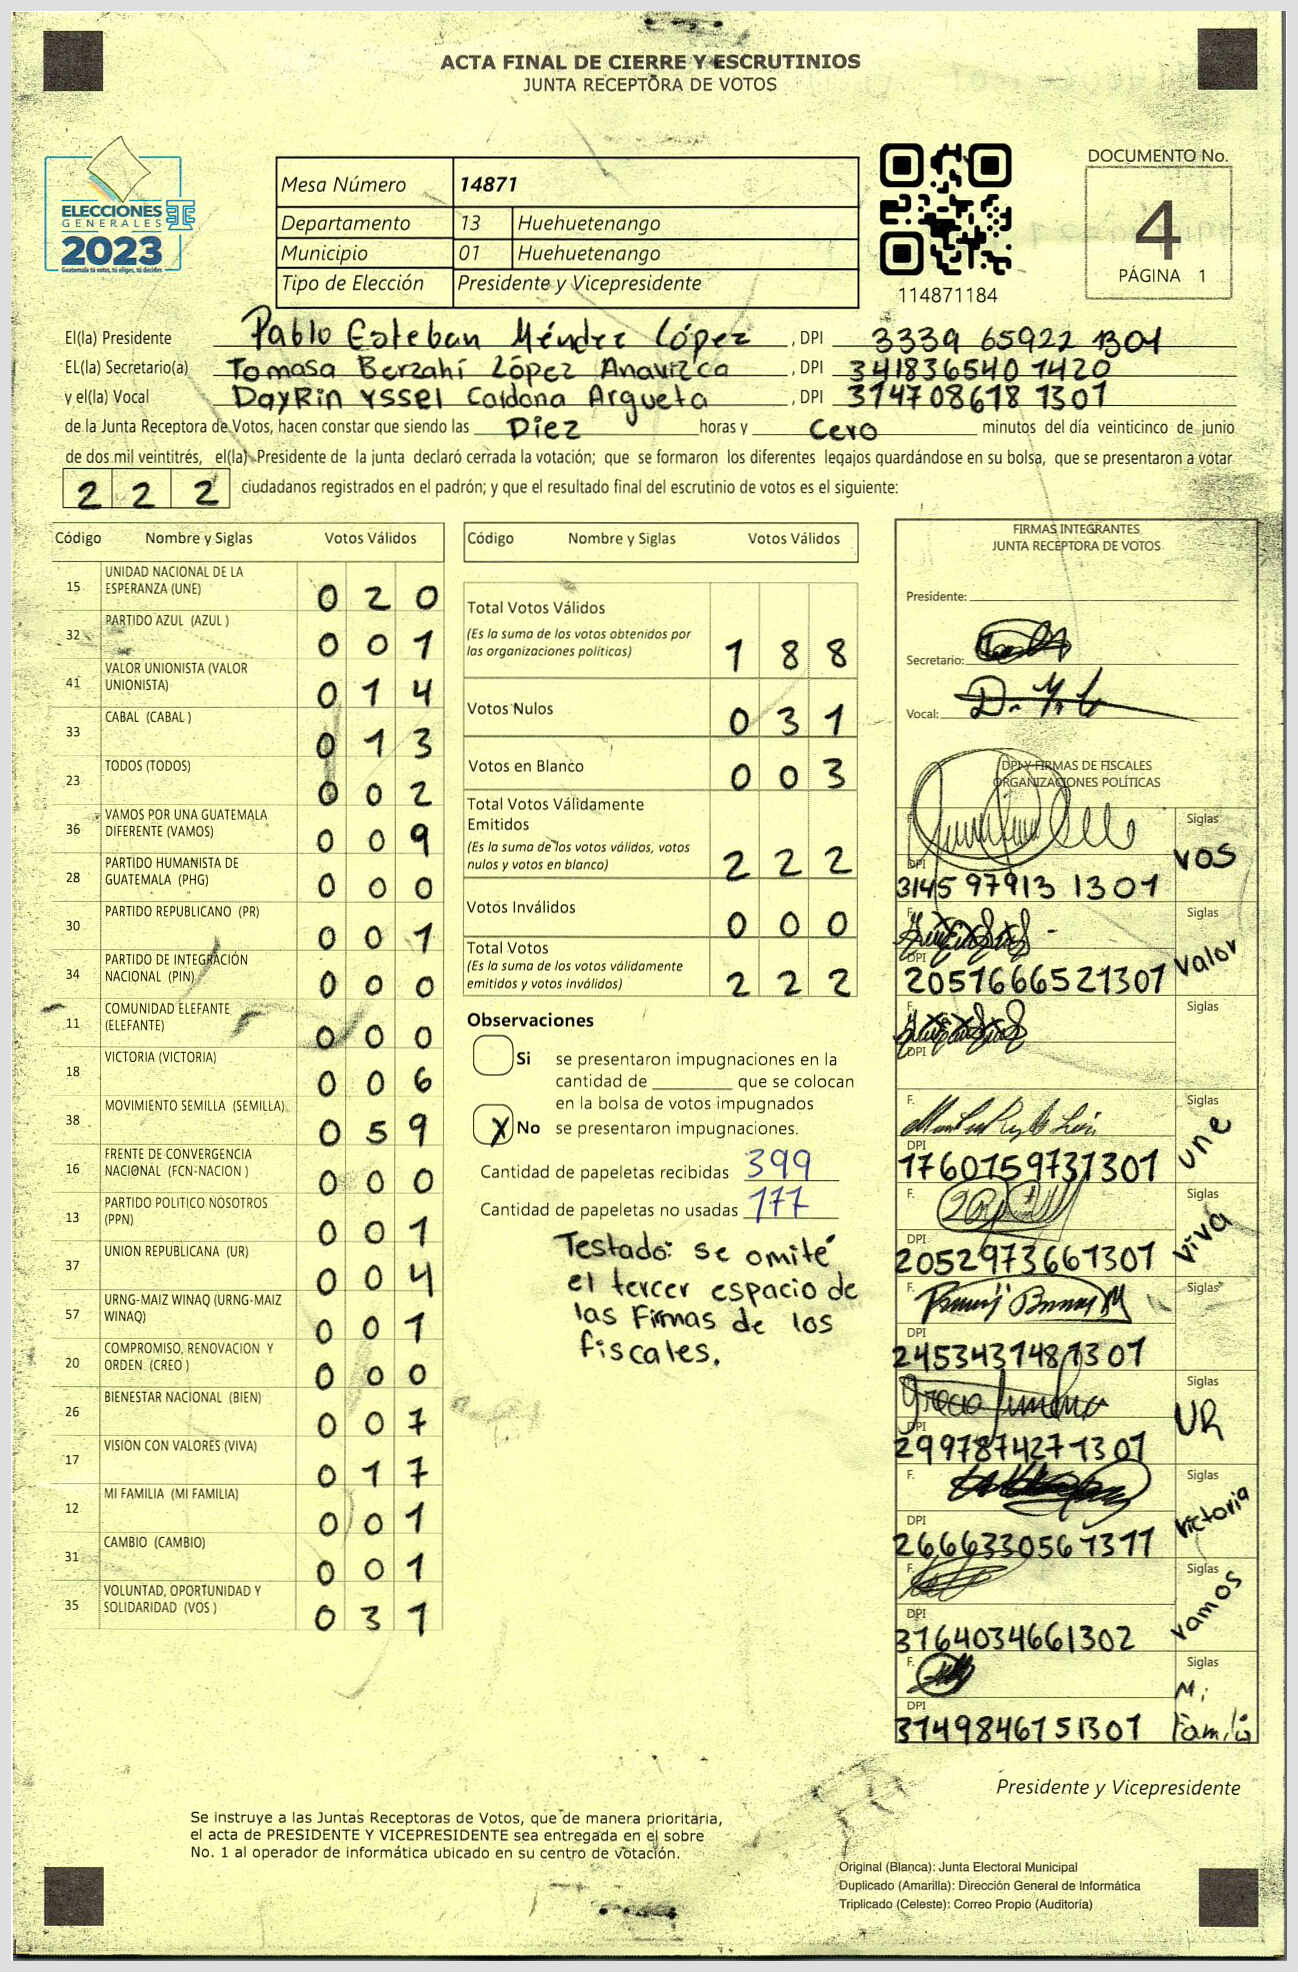 ACTA FINAL DE CIERRE Y ESCRUTINIOS
JUNTA RECEPTORA DE VOTOS
ELECCIONES
GENERALES
2023
Guatemala tú votas, tú eliges, tú decides
Mesa Número 14871
Departamento 13 Huehuetenango
Municipio 01 Huehuetenango
Tipo de Elección Presidente y Vicepresidente
114871184
DOCUMENTO No.
4
PÁGINA 1
El(la) Presidente Pablo Esteban Méndez López, DPI 3339 65922 1301
EL(la) Secretario(a) Tomasa Berzahí López Anavizca, DPI 341836540 1420
y el(la) Vocal DayRin Yssel Cardona Argueta, DPI 314708618 1301
de la Junta Receptora de Votos, hacen constar que siendo las Diez horas y Cero minutos del día veinticinco de junio
de dos mil veintitrés, el(la) Presidente de la junta declaró cerrada la votación; que se formaron los diferentes legajos guardándose en su bolsa, que se presentaron a votar
222 ciudadanos registrados en el padrón; y que el resultado final del escrutinio de votos es el siguiente:
Código Nombre y Siglas Votos Válidos
15 UNIDAD NACIONAL DE LA ESPERANZA (UNE) 0 2 0
32 PARTIDO AZUL (AZUL ) 0 0 1
41 VALOR UNIONISTA (VALOR UNIONISTA) 0 1 4
33 CABAL (CABAL ) 0 1 3
23 TODOS (TODOS) 0 0 2
36 VAMOS POR UNA GUATEMALA DIFERENTE (VAMOS) 0 0 9
28 PARTIDO HUMANISTA DE GUATEMALA (PHG) 0 0 0
30 PARTIDO REPUBLICANO (PR) 0 0 1
34 PARTIDO DE INTEGRACIÓN NACIONAL (PIN) 0 0 0
11 COMUNIDAD ELEFANTE (ELEFANTE) 0 0 0
18 VICTORIA (VICTORIA) 0 0 6
38 MOVIMIENTO SEMILLA (SEMILLA) 0 5 9
16 FRENTE DE CONVERGENCIA NACIONAL (FCN-NACION ) 0 0 0
13 PARTIDO POLITICO NOSOTROS (PPN) 0 0 1
37 UNION REPUBLICANA (UR) 0 0 4
57 URNG-MAIZ WINAQ (URNG-MAIZ WINAQ) 0 0 1
20 COMPROMISO, RENOVACION Y ORDEN (CREO ) 0 0 0
26 BIENESTAR NACIONAL (BIEN) 0 0 7
17 VISION CON VALORES (VIVA) 0 1 7
12 MI FAMILIA (MI FAMILIA) 0 0 1
31 CAMBIO (CAMBIO) 0 0 1
35 VOLUNTAD, OPORTUNIDAD Y SOLIDARIDAD (VOS ) 0 3 1
Código Nombre y Siglas Votos Válidos
Total Votos Válidos
(Es la suma de los votos obtenidos por
las organizaciones políticas) 1 8 8
Votos Nulos 0 3 1
Votos en Blanco 0 0 3
Total Votos Válidamente
Emitidos
(Es la suma de los votos válidos, votos
nulos y votos en blanco) 2 2 2
Votos Inválidos 0 0 0
Total Votos
(Es la suma de los votos válidamente
emitidos y votos inválidos) 2 2 2
Observaciones
Si se presentaron impugnaciones en la
cantidad de ________ que se colocan
en la bolsa de votos impugnados
X No se presentaron impugnaciones.
Cantidad de papeletas recibidas 399
Cantidad de papeletas no usadas 177
Testado: se omite
el tercer espacio de
las Firmas de los
fiscales.
FIRMAS INTEGRANTES
JUNTA RECEPTORA DE VOTOS
Presidente:
Secretario:
Vocal:
DPI Y FIRMAS DE FISCALES
ORGANIZACIONES POLÍTICAS
F. Siglas
DPI 3145 97913 1301 VOS
F. Siglas
DPI 2051666521301 Valor
F. Siglas
DPI
F. Siglas
DPI 1760159731301 une
F. Siglas
DPI 2052973661301 Viva
F. Siglas
DPI 2453431481301
F. Siglas
DPI 2997874271301 UR
F. Siglas
DPI 2666330561311 Victoria
F. Siglas
DPI 3764034661302 Vamos
F. Siglas
DPI 3149846151301 Mi Familia
Presidente y Vicepresidente
Se instruye a las Juntas Receptoras de Votos, que de manera prioritaria,
el acta de PRESIDENTE Y VICEPRESIDENTE sea entregada en el sobre
No. 1 al operador de informática ubicado en su centro de votación.
Original (Blanca): Junta Electoral Municipal
Duplicado (Amarilla): Dirección General de Informática
Triplicado (Celeste): Correo Propio (Auditoría)